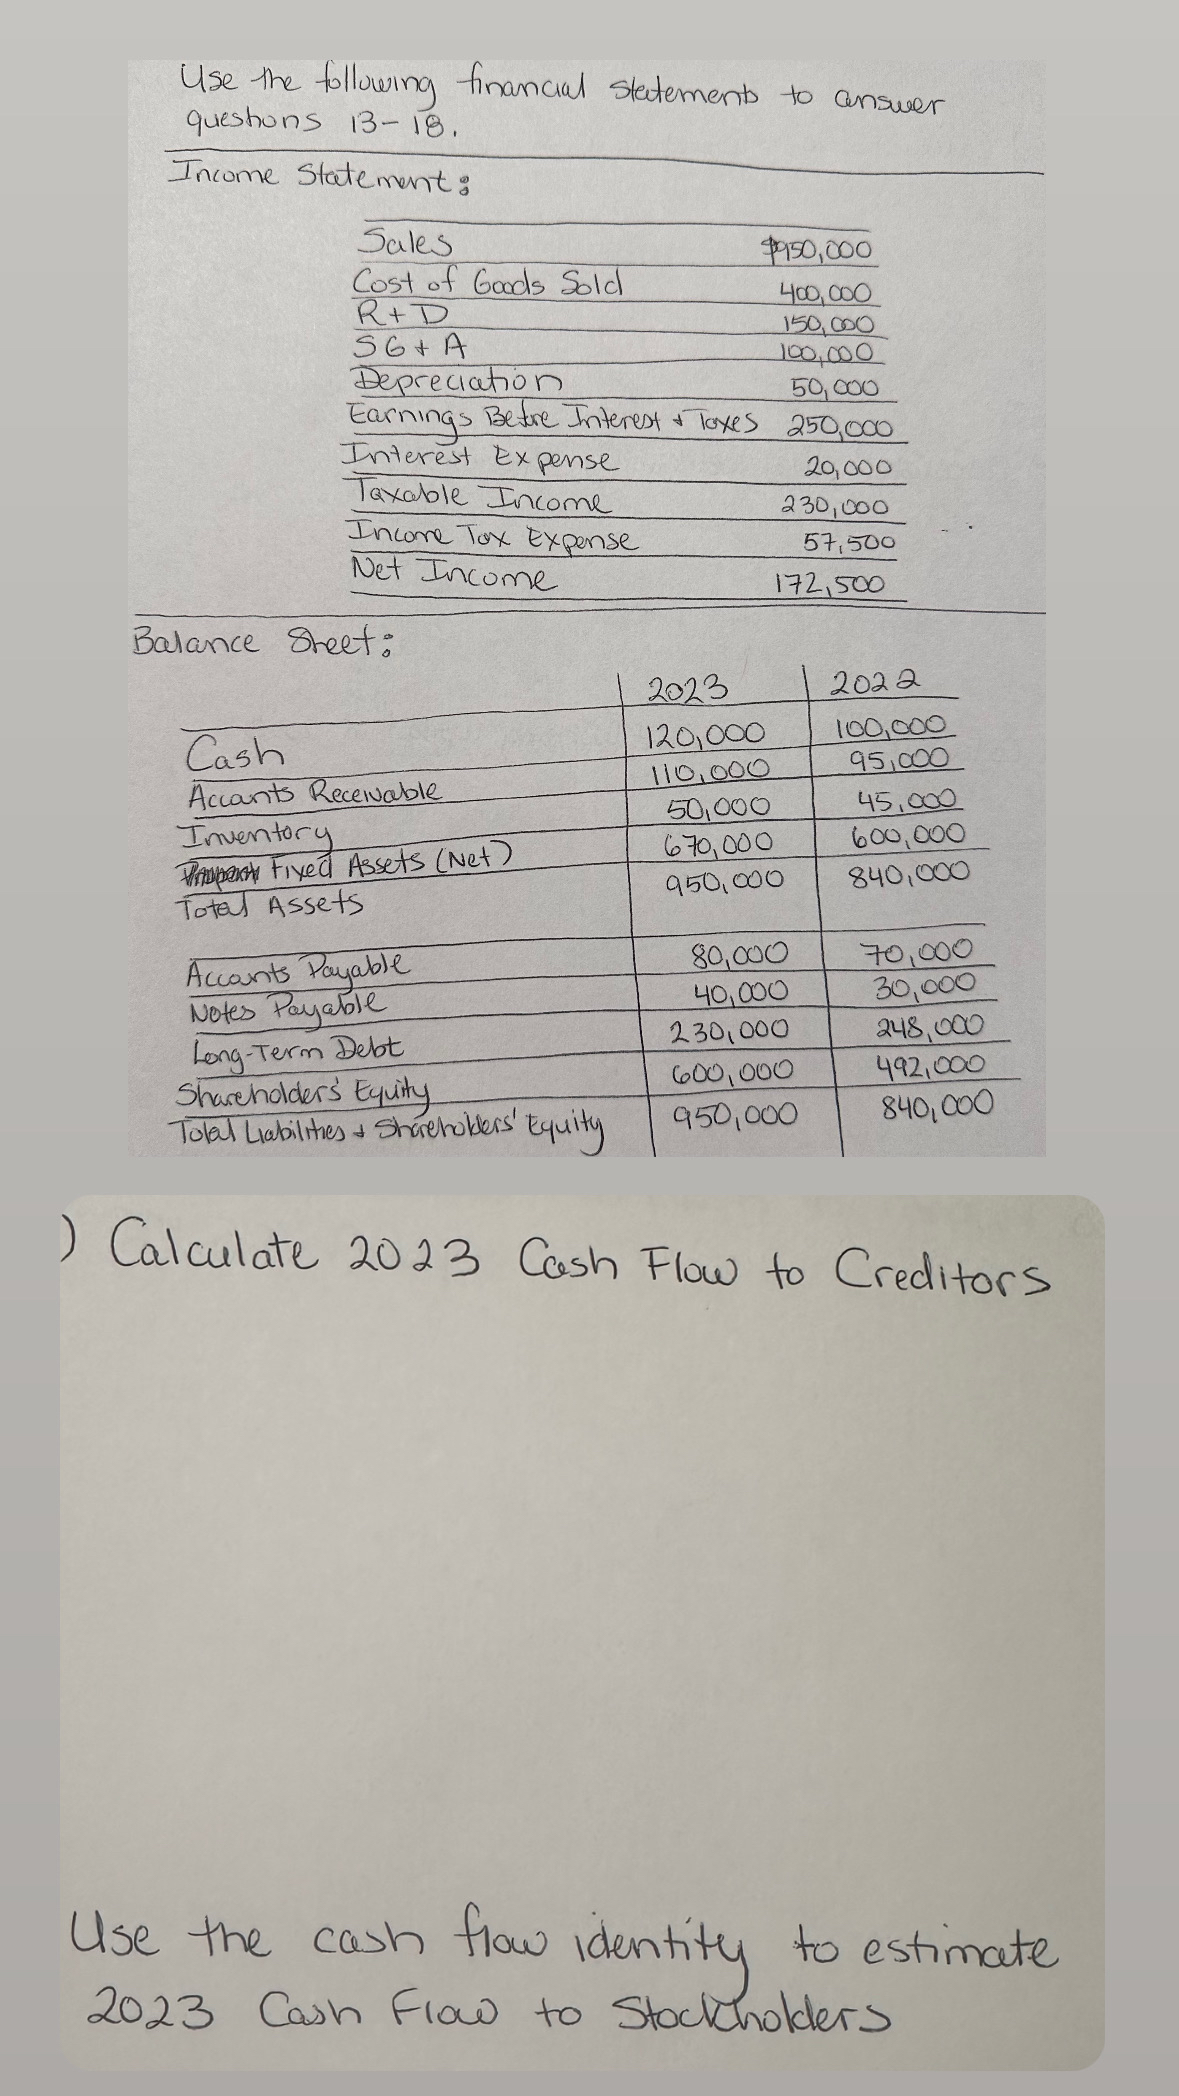 Use the following financial statements to answer
questions 13-18.
Income Statement:
Sales $950,000
Cost of Goods Sold 400,000
R+D 150,000
SG+A 100,000
Depreciation 50,000
Earnings Before Interest + Taxes 250,000
Interest Expense 20,000
Taxable Income 230,000
Income Tax Expense 57,500
Net Income 172,500
Balance Sheet:
2023 2022
Cash 120,000 100,000
Accounts Receivable 110,000 95,000
Inventory 50,000 45,000
Fixed Assets (Net) 670,000 600,000
Total Assets 950,000 840,000
Accounts Payable 80,000 70,000
Notes Payable 40,000 30,000
Long-Term Debt 230,000 248,000
Shareholders' Equity 600,000 492,000
Total Liabilities + Shareholders' Equity 950,000 840,000
) Calculate 2023 Cash Flow to Creditors
Use the cash flow identity to estimate
2023 Cash Flow to Stockholders